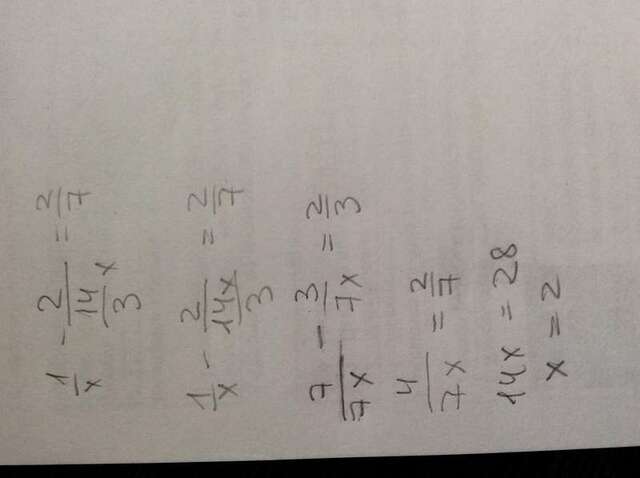 1/x - 2/(14/3 x) = 2/7
1/x - 2/(14x/3) = 2/7
7/7x - 3/7x = 2/3
4/7x = 2/7
14x = 28
x = 2